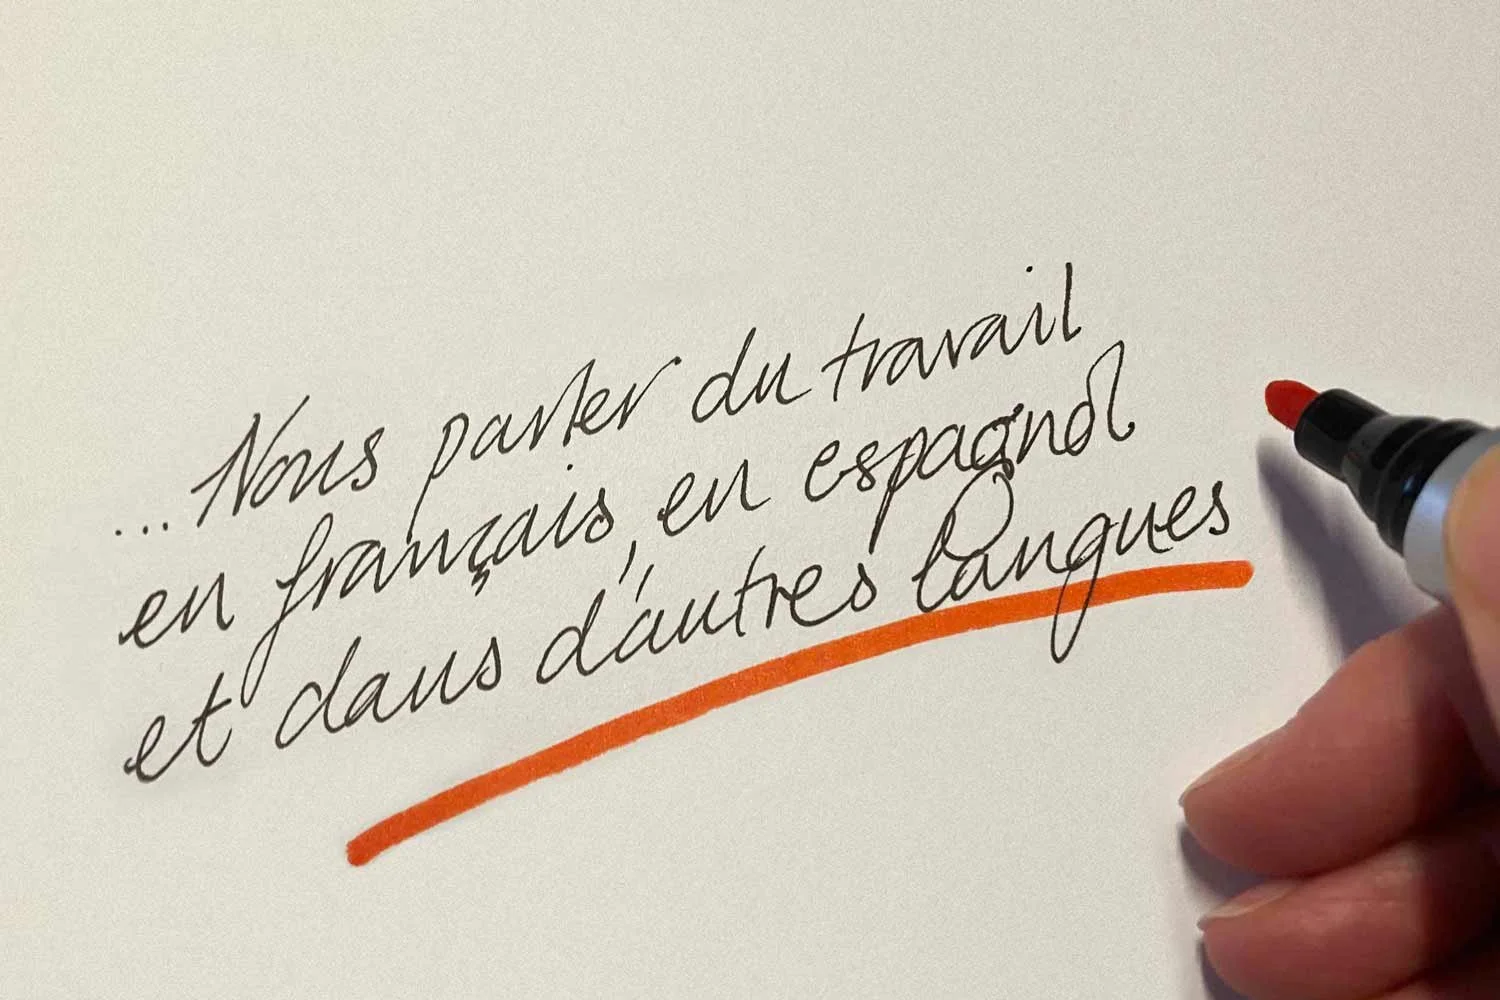 ...Nous parler du travail
en français, en espagnol
et dans d'autres langues